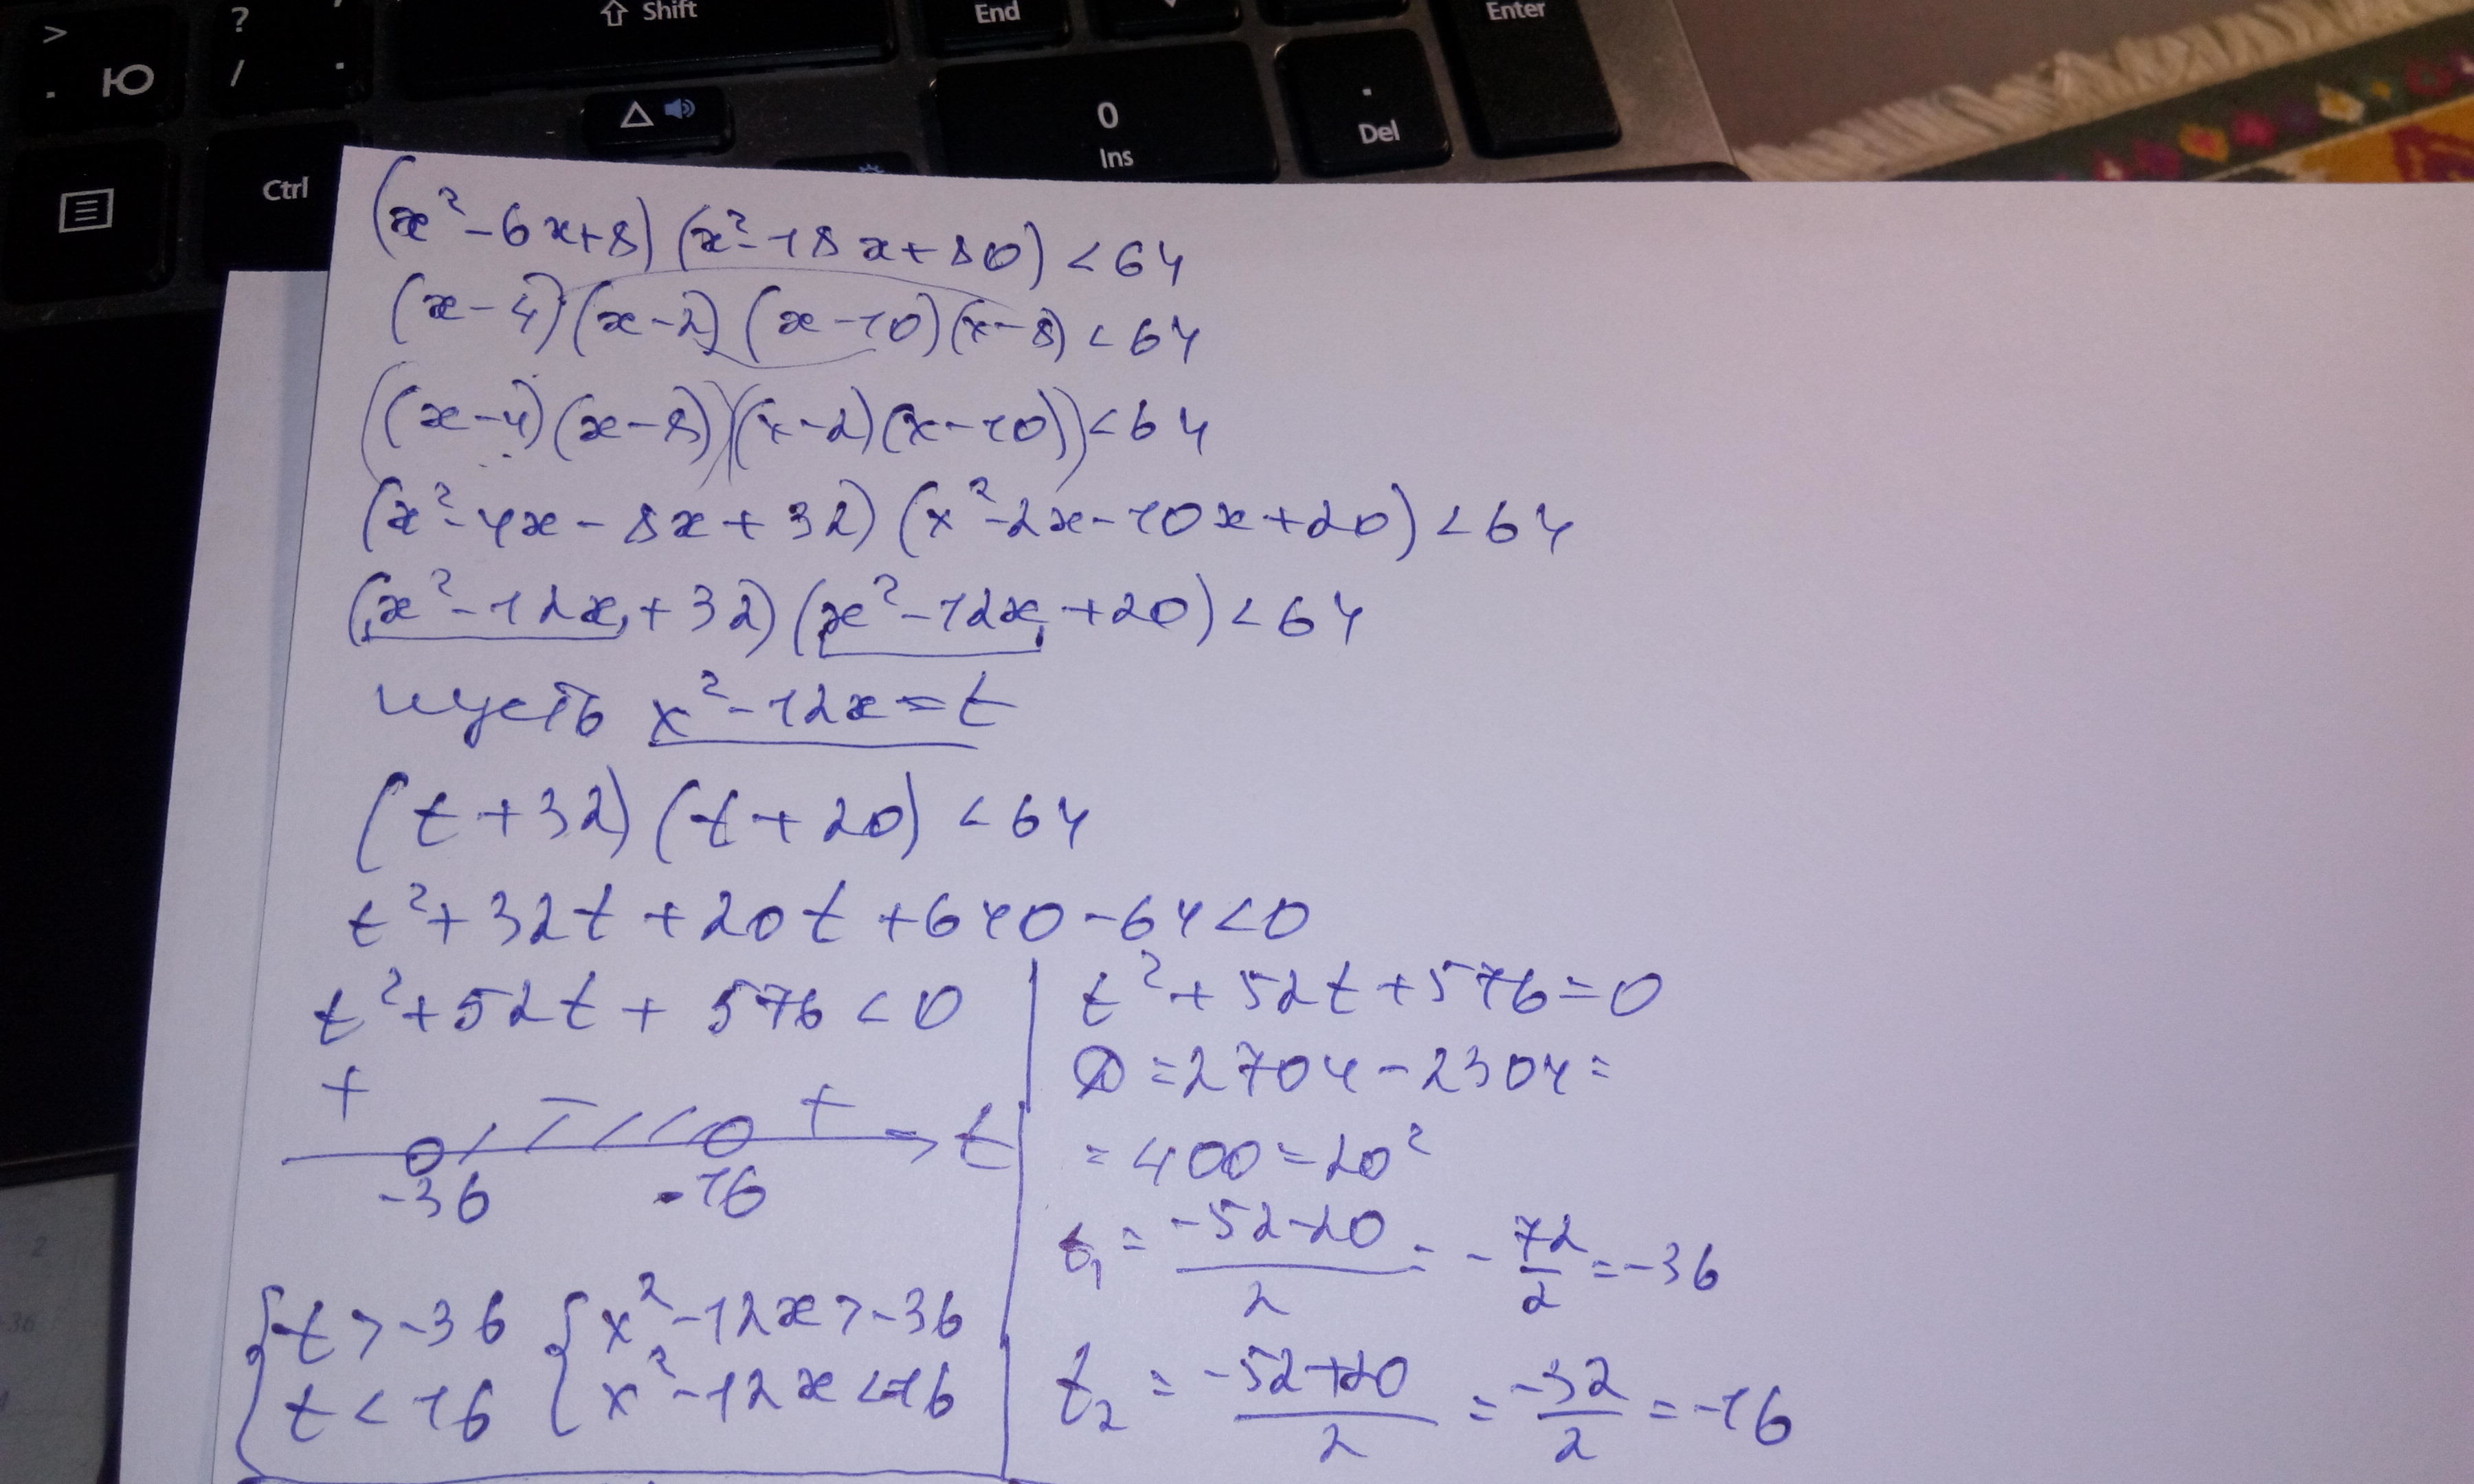 >
. Ю
?
/ .
⇧ Shift
End
Enter
Ctrl
0
Ins
.
Del
(x²-6x+8)(x²-18x+80)<64
(x-4)(x-2)(x-10)(x-8)<64
((x-4)(x-8))((x-2)(x-10))<64
(x²-4x-8x+32)(x²-2x-10x+20)<64
(x²-12x+32)(x²-12x+20)<64
пусть x²-12x=t
(t+32)(t+20)<64
t²+32t+20t+640-64<0
t²+52t+576<0
+ - + t
-36 -16
{t>-36 {x²-12x>-36
t<16 x²-12x<-16
t²+52t+576=0
D=2704-2304=
=400=20²
t₁=(-52-20)/2=-72/2=-36
t₂=(-52+20)/2=-32/2=-16